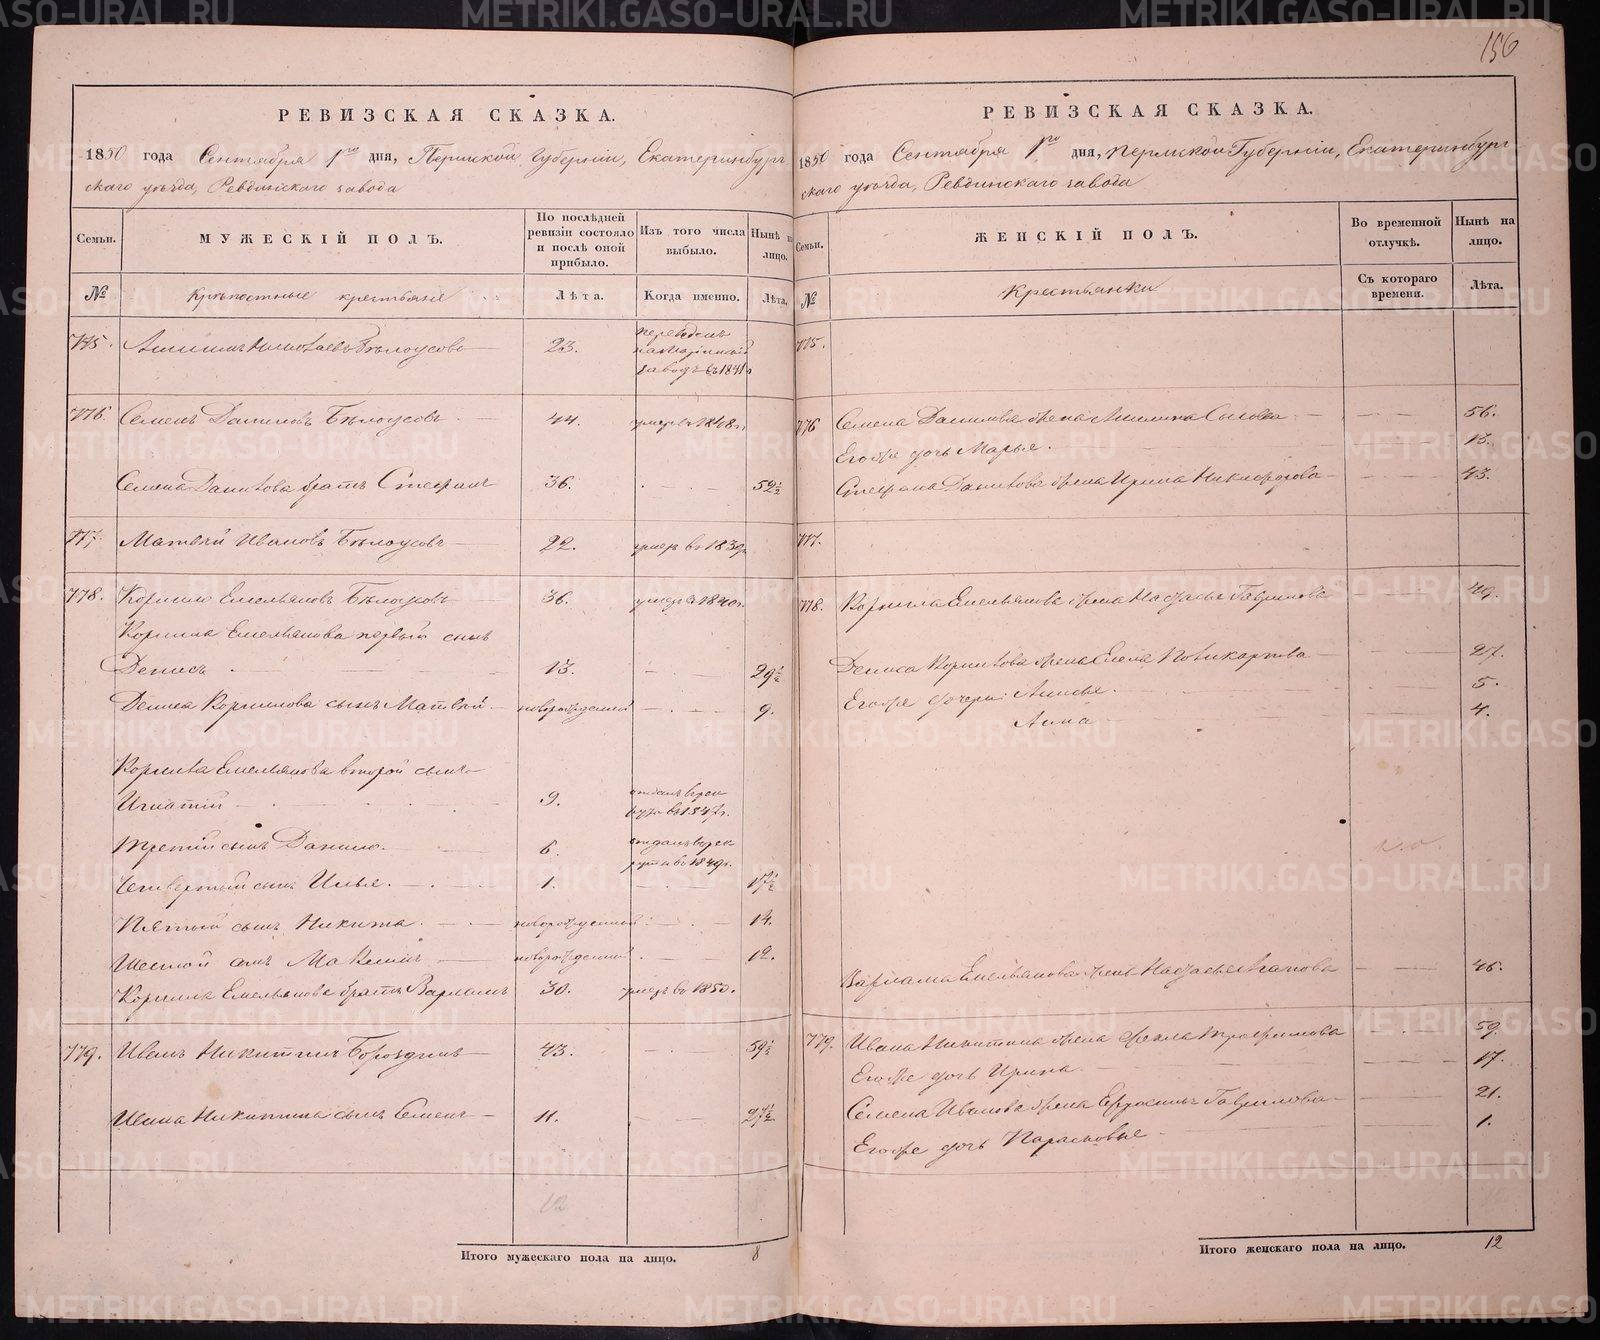 156
РЕВИЗСКАЯ СКАЗКА.
1850 года Сентября 1го дня, Пермской Губернии, Екатеринбург
скаго уѣзда, Ревдинскаго завода
Семьи.
МУЖЕСКІЙ ПОЛЪ.
По послѣдней ревизіи состояло и послѣ оной прибыло.
Изъ того числа выбыло.
Нынѣ на лицо.
№
Крѣпостные крестьяне
Лѣта.
Когда именно.
Лѣта.
775.
Бѣлоусовъ
23.
переведенъ
заводъ въ 1841 г
776.
Семенъ Даниловъ Бѣлоусовъ
44.
умеръ въ 1848 г.
Семена Данилова братъ Стефанъ
36.
52½
777.
Матвѣй Ивановъ Бѣлоусовъ
22.
умеръ въ 1839 г.
778.
Корнило Емельяновъ Бѣлоусовъ
36.
умеръ въ 1840 г.
Корнила Емельянова первый сынъ
Денисъ
13.
29½
Дениса Корнилова сынъ Матвѣй
новорожденный
9.
Корнила Емельянова второй сынъ
Игнатій
9.
отданъ въ рек
руты въ 1847 г.
третій сынъ Данило.
6.
отданъ въ рек
руты въ 1849 г.
Четвертый сынъ Илья.
1.
17½
Пятый сынъ Никита.
новорожденный
14.
Шестой сынъ Максимъ
новорожденный
12.
Корнила Емельянова братъ Варламъ
30.
умеръ въ 1850.
779.
Иванъ Никитинъ Бороздинъ
43.
59½
Ивана Никитина сынъ Семенъ
11.
27½
Итого мужескаго пола на лицо.
8
РЕВИЗСКАЯ СКАЗКА.
1850 года Сентября 1го дня, Пермской Губерніи, Екатеринбург
скаго уѣзда, Ревдинскаго завода
Семьи.
ЖЕНСКІЙ ПОЛЪ.
Во временной отлучкѣ.
Нынѣ на лицо.
№
Крестьянки
Съ котораго времени.
Лѣта.
775.
776
Семена Данилова жена
56.
Его же дочь Марья.
13.
Стефана Данилова жена Ирина Никифорова
43.
777.
778.
Корнила Емельянова жена Настасья Гаврилова
49.
Дениса Корнилова жена Елена Поликарпова
27.
Его же дочери: Анисья.
5.
Анна
4.
Варлама Емельянова жена Настасья Агапова
46.
779.
Ивана Никитина жена Фекла Трофимова
59.
Его же дочь Ирина.
17.
Семена Иванова жена Гаврилова
21.
Его же дочь Парасковья
1.
Итого женскаго пола на лицо.
12
METRIKI.GASO-URAL.RU